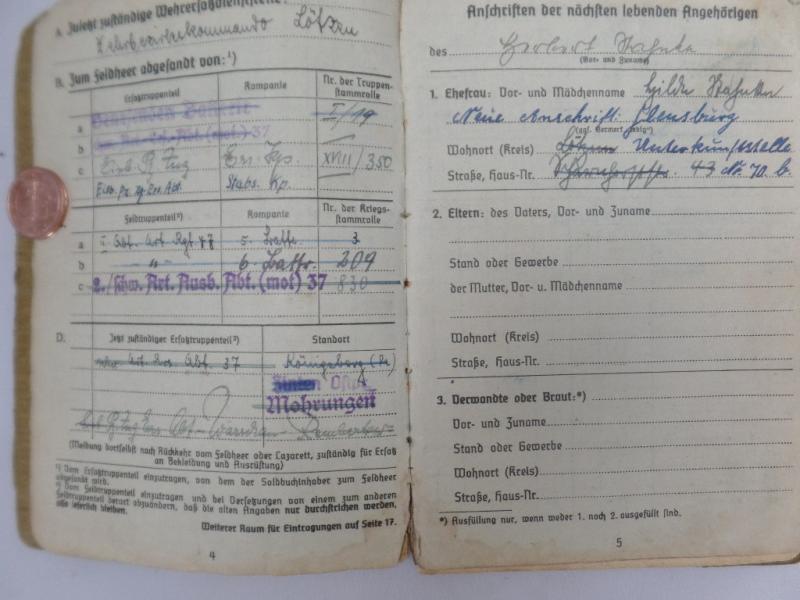 A. Zuletzt zuständige Wehrersatzdienststelle:
Wehrbezirkskommando Lötzen
B. Zum Feldheer abgesandt von:¹)
Ersatztruppenteil
Kompanie
Nr. der Truppen-
stammrolle
a
I/19
b
c
Ers. Kp.
XVIII/350
Stabs. Kp.
Feldtruppenteil²)
Kompanie
Nr. der Kriegs-
stammrolle
a II. Abt. Art. Rgt. 47 5. Battr. 3
b " 6. Battr. 209
c 2./schw. Art. Ausb. Abt. (mot) 37 830
D.
Jetzt zuständiger Ersatztruppenteil²)
Standort
Abt. 37 Königsberg (Pr)
Mohrungen
Warschau - Rembertow
(Meldung dortselbst nach Rückkehr vom Feldheer oder Lazarett, zuständig für Ersatz
an Bekleidung und Ausrüstung)
¹) Vom Ersatztruppenteil einzutragen, von dem der Soldbuchinhaber zum Feldheer
abgesandt wird.
²) Vom Feldtruppenteil einzutragen und bei Versetzungen von einem zum anderen
Feldtruppenteil derart abzuändern, daß die alten Angaben nur durchstrichen werden,
also leserlich bleiben.
Weiterer Raum für Eintragungen auf Seite 17.
4
Anschriften der nächsten lebenden Angehörigen
des Herbert
(Vor- und Zuname)
1. Ehefrau: Vor- und Mädchenname Hilde
Neue Anschrift: Flensburg
(ggf. Vermerk „ledig")
Wohnort (Kreis) Lötzen Unterkunftsstelle
Straße, Haus-Nr. 43 No. 70 b.
2. Eltern: des Vaters, Vor- und Zuname
Stand oder Gewerbe
der Mutter, Vor- u. Mädchenname
Wohnort (Kreis)
Straße, Haus-Nr.
3. Verwandte oder Braut:*)
Vor- und Zuname
Stand oder Gewerbe
Wohnort (Kreis)
Straße, Haus-Nr.
*) Ausfüllung nur, wenn weder 1. noch 2. ausgefüllt sind.
5